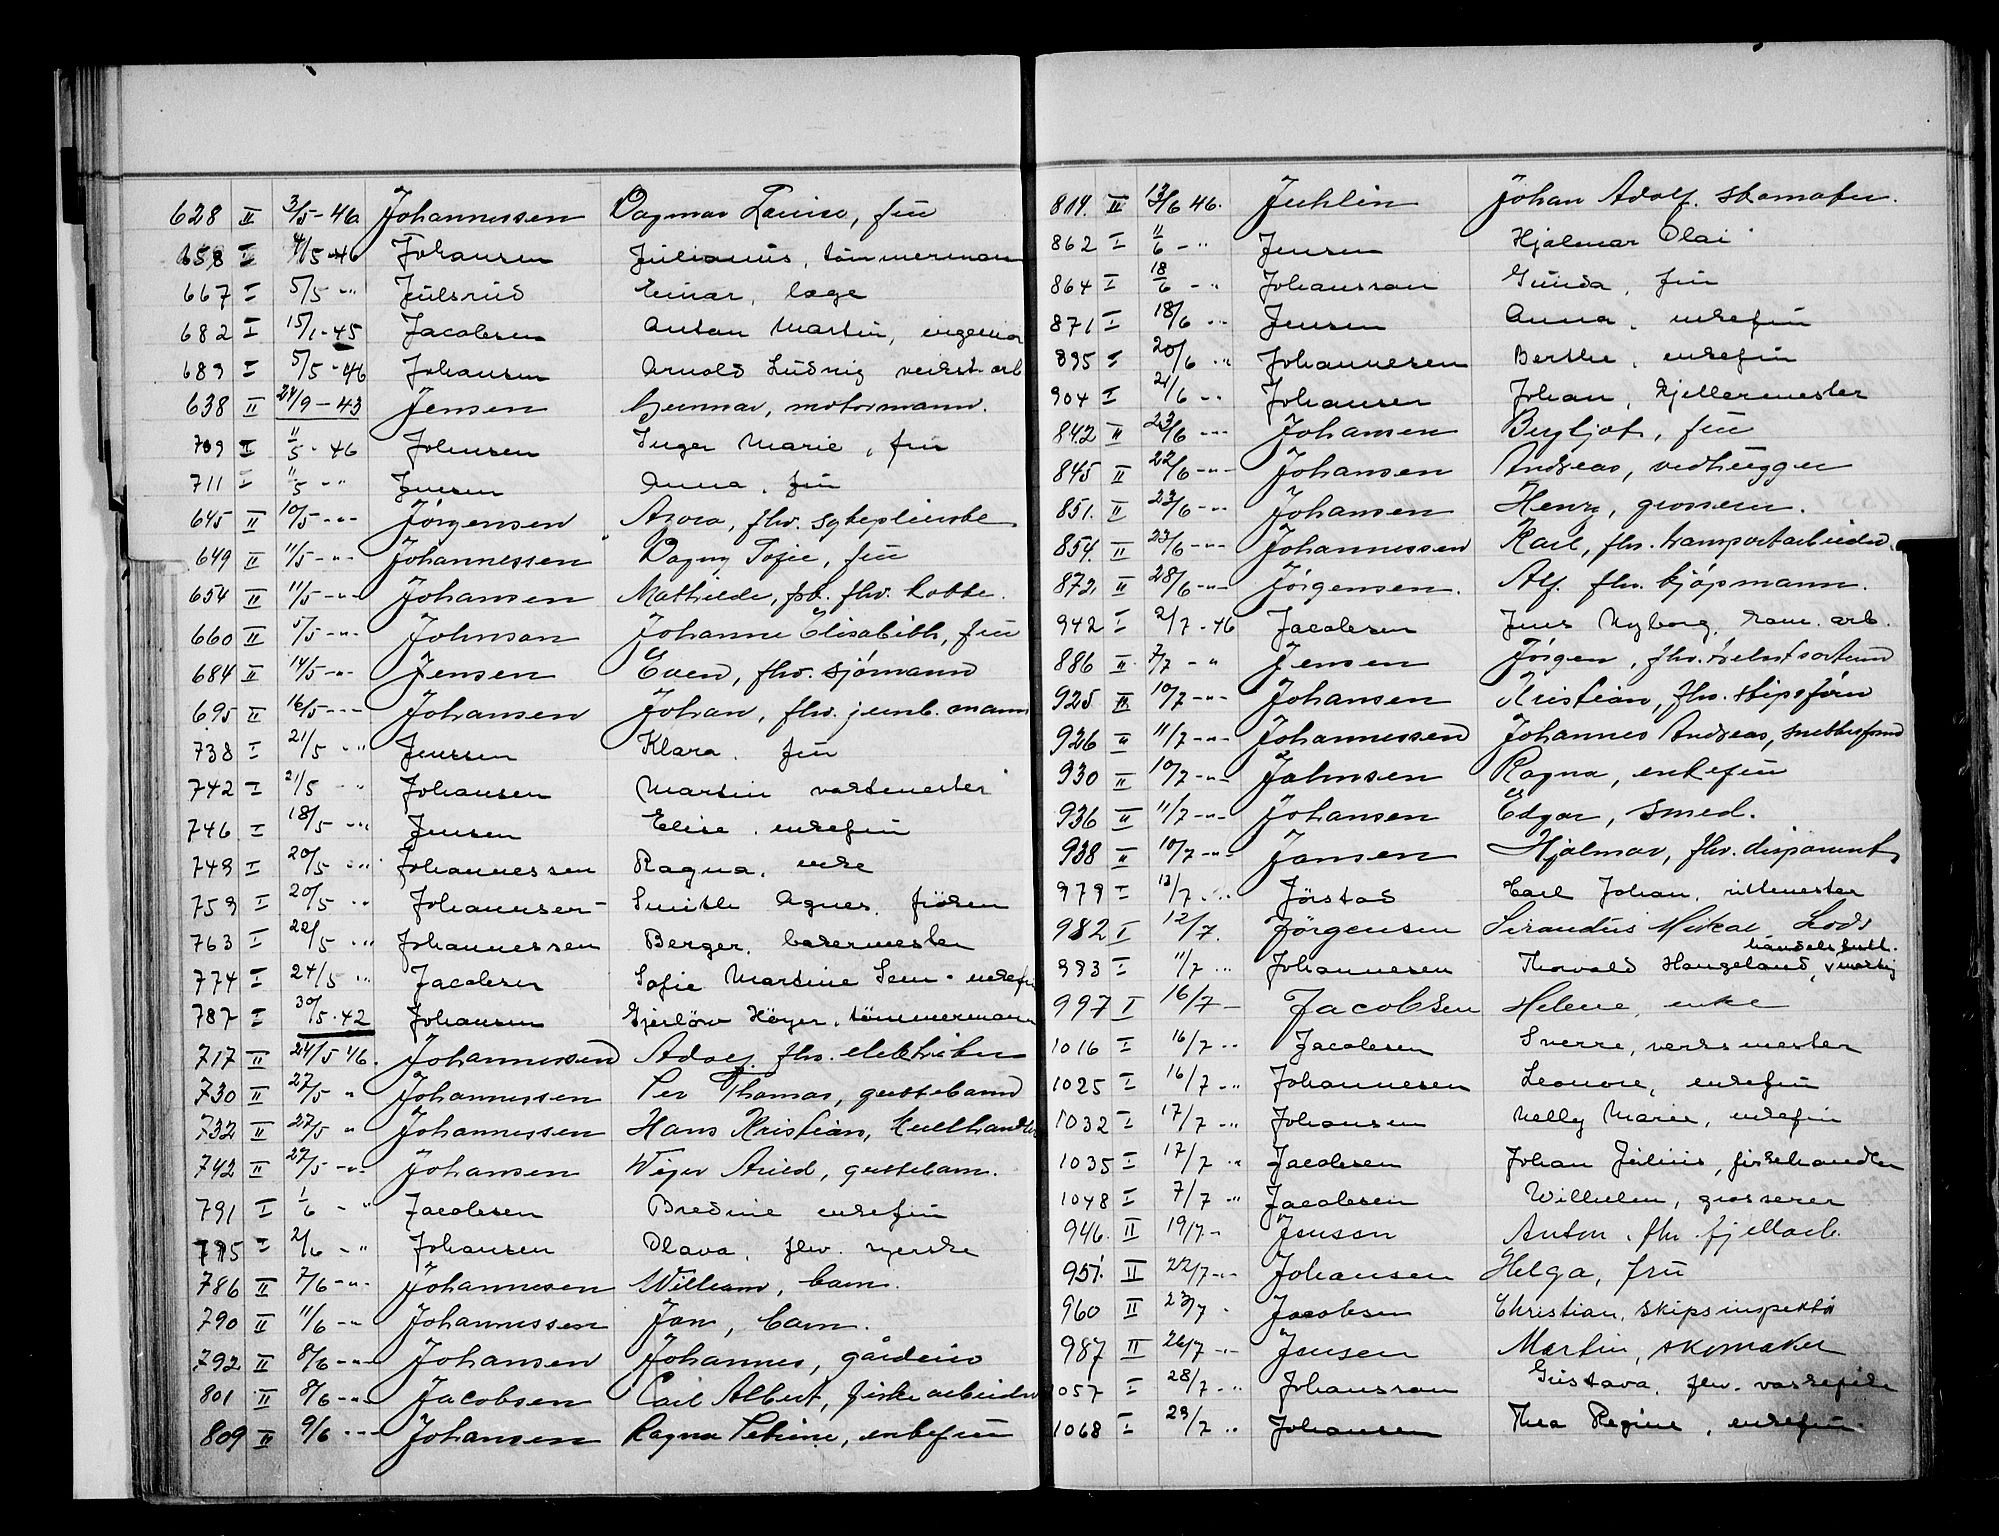 628 II 3/5-46 Johannessen Dagmar Louise, fru
658 I 4/5-46 Johansen Julianus, tömmermann
667 I 5/5 -"- Julsrud Einar, lage
682 I 15/1-45 Jacobsen Anton Martin, ingeniør
689 I 5/5-46 Johansen Arnold Ludvig verkst.arb
638 II 24/9-43 Jensen Gunnar, motormann.
709 I 11/5-46 Johnsen Inger Marie, fru
711 I 11/5 -"- Jensen Anna, fru
645 II 10/5 -"- Jörgensen Asora, fhv. sykepleierske
649 II 11/5 -"- Johannessen Dagny Sofie, fru
654 II 11/5 -"- Johansen Mathilde, fhv. kokke.
660 II 5/5 -"- Johnson Johanne Elisabeth, fru
684 II 14/5 -"- Jensen Even, fhv. sjömann
695 II 16/5 -"- Johansen Johan, fhv. jernb.mann
738 I 21/5 -"- Jenssen Klara, fru
742 I 21/5 -"- Johansen Martin vaktmester
746 I 18/5 -"- Jensen Elise, enkefru
749 I 20/5 -"- Johannessen Ragna, enke
759 I 20/5 -"- Johannsen Smith Agnes, fröken
763 I 22/5 -"- Johannessen Berger, bakermester
774 I 24/5 -"- Jacobsen Sofie Martine Sem - enkefru
787 I 30/5-42 Johansen Gjerlöw Höyer, tömmermann
717 II 24/5 46. Johannessen Adolf fhv. elektriker
730 II 27/5 " Johannessen Per Thomas, guttebarn
732 II 27/5 " Johannessen Hans Kristian, kullhandler
742 II 27/5 -"- Johansen Weger Arild, guttebarn.
791 I 1/6 -" Jacobsen Bredine enkefru
795 I 2/6 -" Johansen Olava, fhv. syerske
786 II 7/6 -"- Johannesen William, barn.
790 II 11/6 -"- Johannessen Jan, barn.
792 II 8/6 -"- Johansen Johannes, gårdeier
801 II 8/6 -"- Jacobsen Carl Albert, fiskearbeider
809 II 9/6 -"- Johansen Ragna Petrine, enkefru
814. II 13/6 46. Juhlin Johan Adolf. skomaker.
862 I 11/6 -" Jensen Hjalmar Olai
864 I 18/6 -" Johansson Gunda, fru
871 I 18/6 -" Jensen Anna, enkefru
895 I 20/6 -" Johannesen Berthe, enkefru
904 I 21/6 -" Johansen Johan, kjellermester
842 II 23/6 -"- Johansen Bergljot, fru
845 II 22/6 -"- Johansen Andreas, vedhugger
851. II 23/6 -"- Johansen Henry, grosserer.
854. II 23/6 -"- Johannessen Karl, fhv. transportarbeider.
872. II 28/6 -"- Jörgensen. Alf. fhv. kjöpmann.
942 I 2/7-46 Jacobsen Jens Nyborg, kom. arb.
886 II 7/7 -" Jensen Jörgen, fhv.
925 II 10/7 -"- Johansen Kristian, fhv. skipsförer
926 II 11/7 -"- Johannessen Johannes Andreas,
930 II 10/7 -"- Johnsen Ragna, enkefru
936 II 11/7 -"- Johansen Edgar, smed.
938 II 10/7 -"- Jansen Hjalmar, fhv. disponent
979 I 13/7 -" Jörstad Carl Johan, rittmester
982 I 12/7. Jörgensen Sirandus Mikal Lods
993 I 11/7 -" Johannesen Thorvald Haugeland, handelsfullmektig
997 I 16/7 - Jacobsen Helene, enke
1016 I 16/7 -" Jacobsen Sverre, verksmester
1025 I 16/7 -" Johannesen Leonore, enkefru
1032 I 17/7 -" Johansen Nelly Marie, enkefru
1035 I 17/7 -" Jacobsen Johan Julius, fiskehandler
1048 I 7/7 -" Jacobsen Wilhelm, grosserer
946. II 19/7 -" Jensen Anton. fhv. fjellarb.
951. II 22/7 -"- Johansen Helga, fru
960 II 23/7 " Jacobsen Christian, skipsinspektör
987 II 26/7 -"- Jensen Martin, skomaker
1057 I 28/7 -" Johansson Gustava, fhv. vaskepike
1068 I 29/7 -" Johansen Thea Regine, enkefru